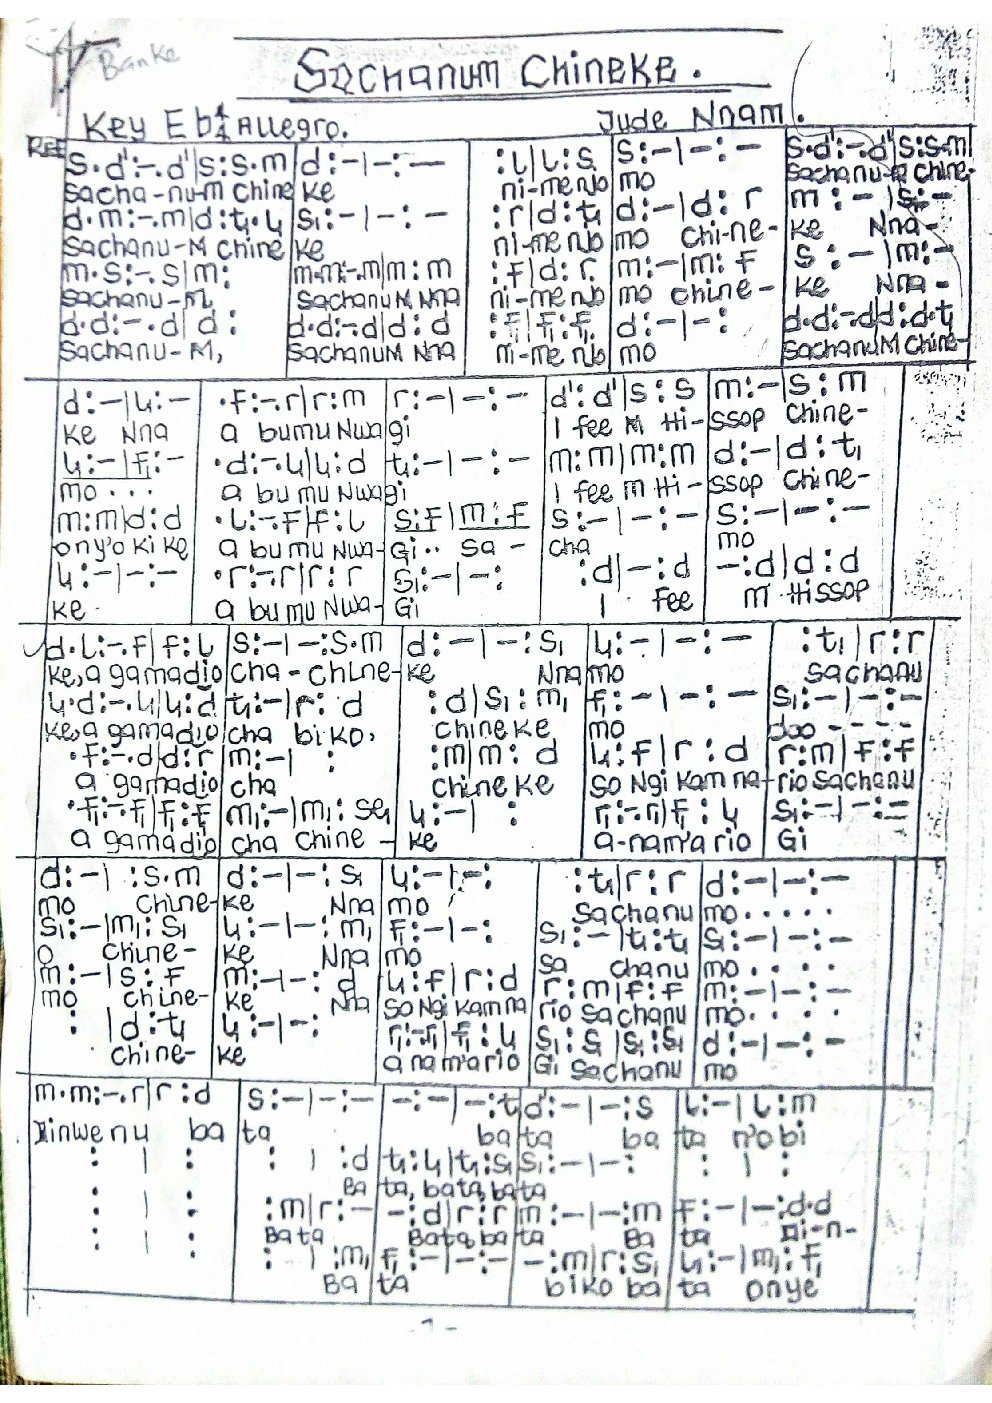 Banke
Sachanum Chineke.
Key Eb 4/4 Allegro. Jude Nnam.
REF
s.d':-.d'|s:s.m | d:-|-:- | :l|l:s | s:-|-:- | s.d':-.d'|s:s.m
Sacha-nu-m Chine ke ni-me njo mo Sachanu-m Chine-
d.m:-.m|d:t₁.l₁ | s₁:-|-:- | :r|d:t₁ | d:-|d:r | m:-|s:-
Sachanu-M Chine ke ni-me njo mo chi-ne- ke Nna-
m.s:-.s|m: | m.m:-.m|m:m | :f|d:r | m:-|m:f | s:-|m:-
Sachanu-M Sachanum Nna ni-me njo mo chine- ke Nna-
d.d:-.d|d: | d.d:-.d|d:d | :f₁|f₁:f₁ | d:-|-: | d.d:-.d|d:d.t₁
Sachanu-M, SachanuM Nna ni-me njo mo SachanuM Chine-
d:-|l₁:- | .f:-.r|r:m | r:-|-:- | d':d'|s:s | m:-|s:m
ke Nna a bumu Nwa gi I fee M Hi- ssop Chine-
l₁:-|f₁:- | .d:-.l₁|l₁:d | t₁:-|-:- | m:m|m:m | d:-|d:t₁
mo... a bu mu Nwa gi I fee m Hi- ssop Chine-
m:m|d:d | .l:-.f|f:l | s:f|m:f | s:-|-:- | s:-|-:-
ony'o ki ke a bu mu Nwa- Gi.. Sa- cha mo
l₁:-|-:- | .r:-.r|r:r | s₁:-|-: | :d|-:d | -:d|d:d
ke. a bu mu Nwa- Gi I fee m Hissop
d.l:-.f|f:l | s:-|-:s.m | d:-|-:s₁ | l₁:-|-:- | :t₁|r:r
ke, a gamadio cha-chine- ke Nna mo Sachanu
l₁.d:-.l₁|l₁:d | t₁:-|r:d | :d|s₁:m₁ | f₁:-|-:- | s₁:-|-:-
ke, a gamadio cha biko, chineke mo ooo----
.f:-.d|d:r | m:-| : | :m|m:d | l₁:f|r:d | r:m|f:f
a gamadio cha chineke so Ngi kam na- rio Sachanu
.f₁:-.f₁|f₁:f₁ | m₁:-|m₁:se₁ | l₁:-| : | r₁:-.r₁|f₁:l₁ | s₁:-|-:-
a gamadio cha Chine- ke a-nam'a rio Gi
d:-| :s.m | d:-|-:s₁ | l₁:-|-: | :t₁|r:r | d:-|-:-
mo Chine- ke Nna mo Sachanu mo.....
s₁:-|m₁:s₁ | l₁:-|-:m₁ | f₁:-|-: | s₁:-|t₁:t₁ | s₁:-|-:-
o Chine- ke Nna mo sa chanu mo....
m:-|s:f | m:-|-:d | l₁:f|r:d | r:m|f:f | m:-|-:-
mo chine- ke Nna so Ngi kam na rio Sachanu mo....
: |d:t₁ | l₁:-|-: | r₁:-.r₁|f₁:l₁ | s₁:s₁|s₁:s₁ | d:-|-:-
chine- ke a nam'ario Gi Sachanu mo
m.m:-.r|r:d | s:-|-:- | -:-|-:t | d':-|-:s | l:-|l:m
Dinwenu ba ta ba ta ba ta n'obi
: | : | : | :d | t₁:l₁|t₁:s₁ | s₁:-|-: | : | :
Ba ta, bata, bata
: | : | :m|r:- | -:d|r:r | m:-|-:m | f:-|-:d.d
Bata Bata, ba ta Ba ta Di-n-
: | : | : | :m₁ | f₁:-|-:- | -:m|r:s₁ | l₁:-|m₁:f₁
Ba ta biko ba ta onye
-1-